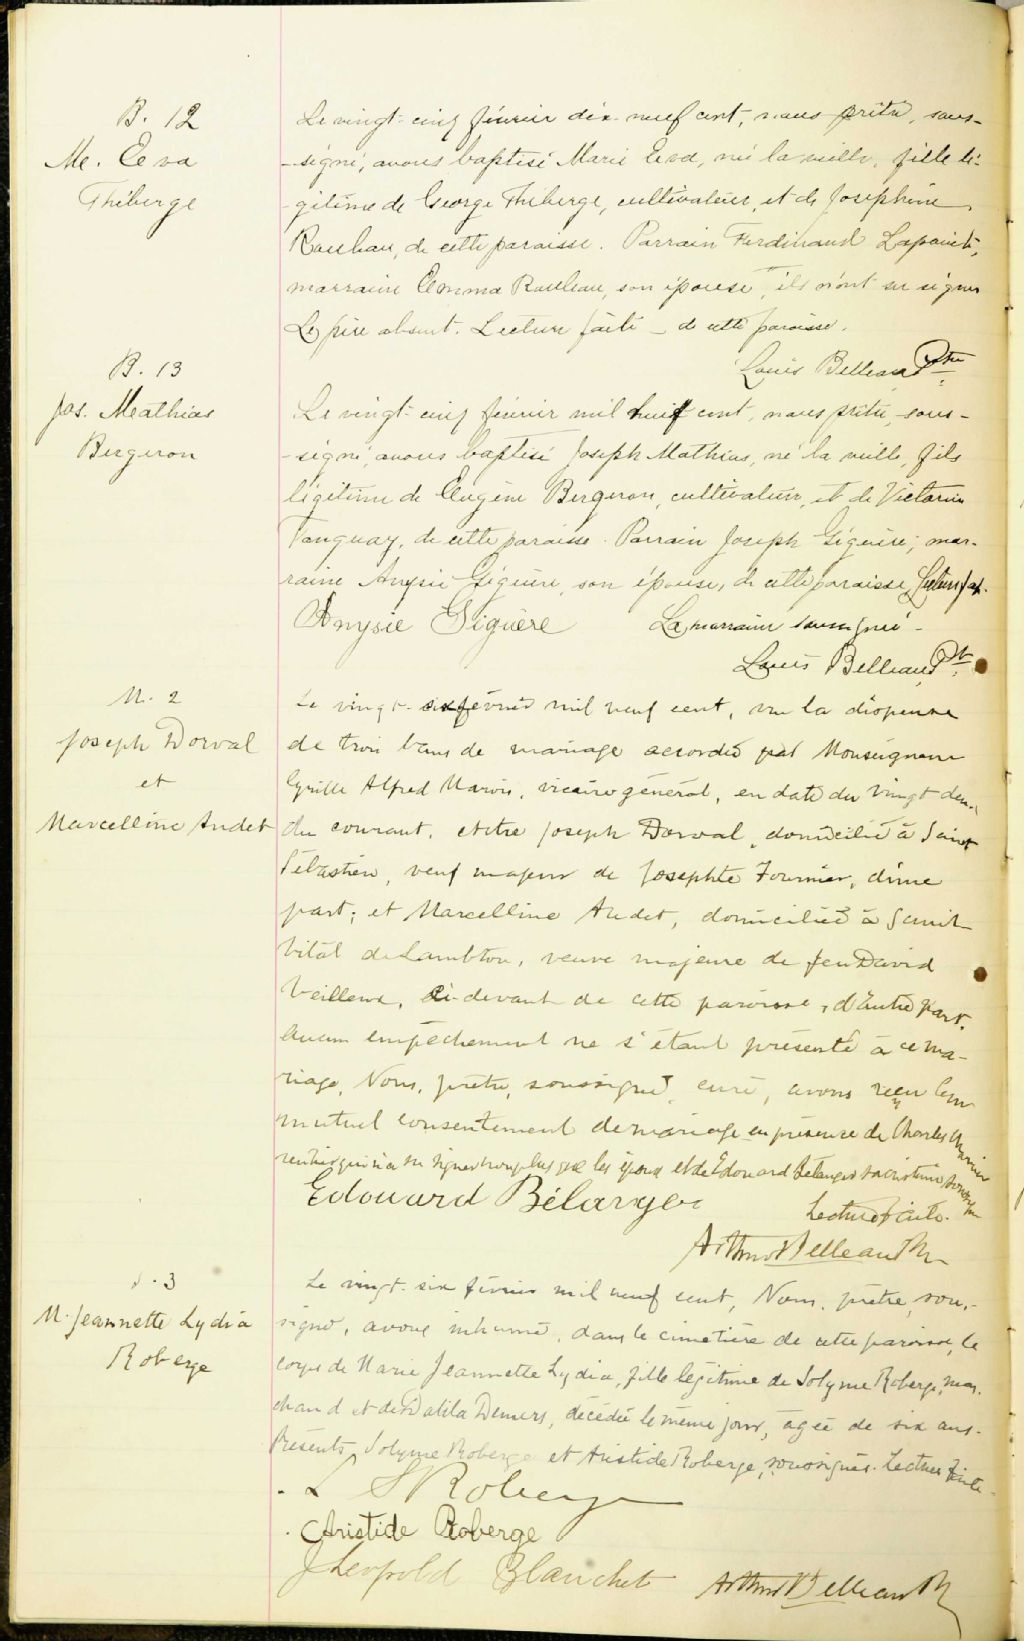 B. 12
Me. Eeva
Thiberge
Le vingt-cinq février dix-neuf cent, nous prêtre, sous-
-signé, avons baptisé Marie Eeva, née la veille, fille lé-
gitime de George Thiberge, cultivateur, et de Josephine
Rouleau, de cette paroisse. Parrain Ferdinand Lapointe,
marraine Emma Rouleau, son épouse, ils n'ont su signer
Le père absent. Lecture faite _ de cette paroisse.
Louis Belleau Ptre
B. 13
Jos. Mathias
Bergeron
Le vingt-cinq février mil huit cent, nous prêtre, sous-
-signé, avons baptisé Joseph Mathias, né la veille, fils
légitime de Eugène Bergeron, cultivateur, et de Victorine
Tanguay, de cette paroisse. Parrain Joseph Giguère; mar-
raine Anysie Giguère, son épouse, de cette paroisse, Lecture fat.
Anysie Giguère La marraine soussignée -
Louis Belleau Pt.
M. 2
Joseph Dorval
et
Marcelline Audet
Le vingt-six février mil neuf cent, vu la dispense
de trois bans de mariage accordée par Monseigneur
Cyrille Alfred Marois, vicaire général, en date du vingt deux
du courant, entre Joseph Dorval, domicilié à Saint
Sébastien, veuf majeur de Josephte Fournier, d'une
part; et Marcelline Audet, domiciliée à Saint
Vital de Lambton, veuve majeure de feu David
Veilleux, ci-devant de cette paroisse, d'autre part,
aucun empêchement ne s'étant présenté à ce ma-
riage, Nous, prêtre, soussigné, curé, avons reçu leur
mutuel consentement de mariage en présence de Charles
rentier qui n'a su signer non plus que les époux et de Edouard Bélanger sacristain
Edouard Bélanger
Lecture faite.
Arthur Belleau Ptr
3
M. Jeannette Lydia
Roberge
Le vingt-six février mil neuf cent, Nous, prêtre, sous-
signé, avons inhumé, dans le cimetière de cette paroisse, le
corps de Marie Jeannette Lydia, fille légitime de Solyme Roberge, mar-
chand et de Dalila Demers, décédée le même jour, âgée de six ans.
Présents, Solyme Roberge et Aristide Roberge, soussignés. Lecture faite.
L S Roberge
Aristide Roberge
J Leopold Blanchet
Arthur Belleau Ptr